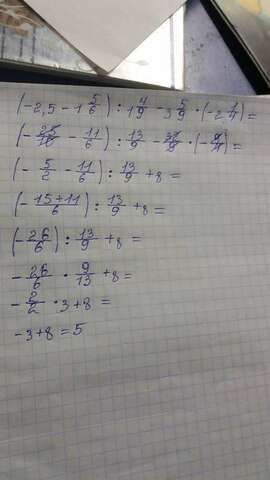 (-2,5 - 1 5/6) : 1 4/9 - 3 5/9 · (-2 1/4) =
(- 25/10 - 11/6) : 13/9 - 32/9 · (- 9/4) =
(- 5/2 - 11/6) : 13/9 + 8 =
(- 15+11/6) : 13/9 + 8 =
(- 26/6) : 13/9 + 8 =
- 26/6 · 9/13 + 8 =
- 2/2 · 3 + 8 =
-3 + 8 = 5